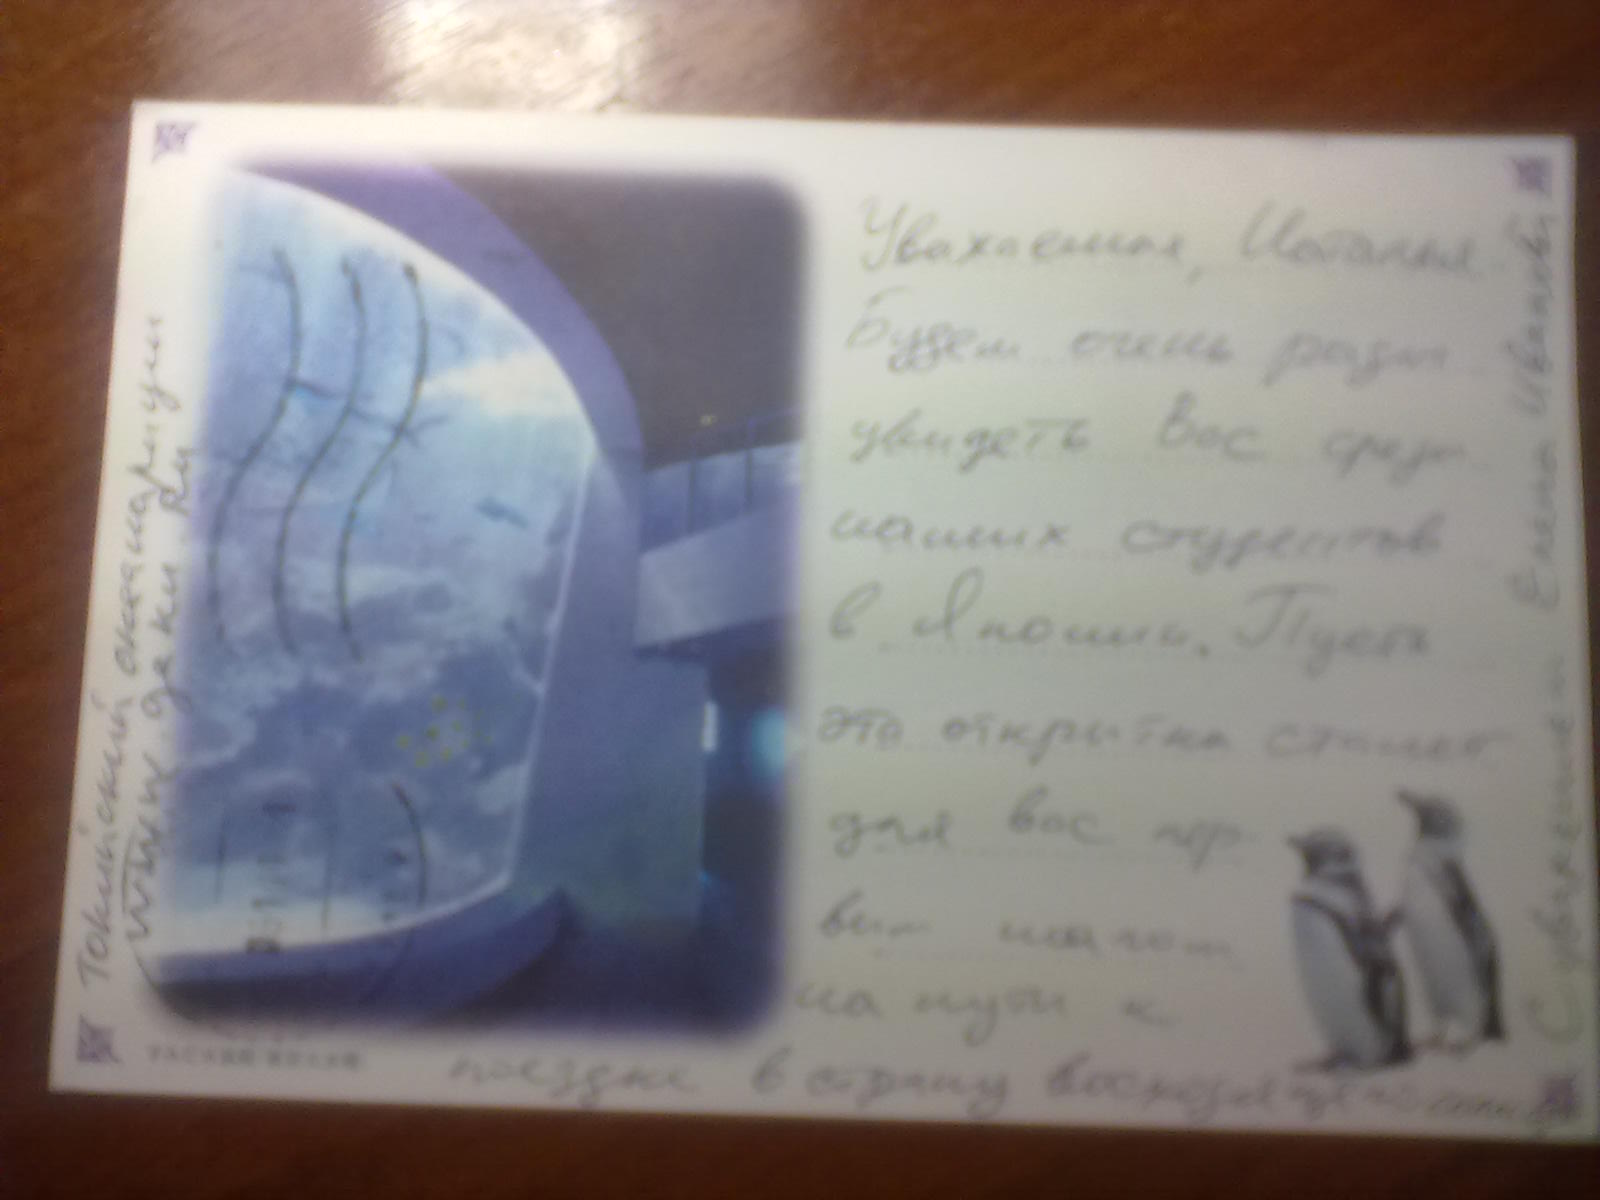 Уважаемая, Наталья.
Будем очень рады
увидеть Вас среди
наших студентов
в Японии. Пусть
эта открытка станет
для вас пер-
вым шагом
на пути к
поездке в страну восходящего солнца
С уважением Елена
Токийский океанариум